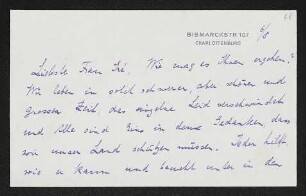 BISMARCKSTR 107
CHARLOTTENBURG
6/8
Liebste Frau Ré, Wie mag es Ihnen ergehen?
Wir leben in solch schwerer, aber schönen und
grossen Zeit, das einzelne Leid verschwindet
und Alle sind Eins in dem Gedanken, dass
wir unser Land schützen müssen. Jeder hilft
wie er kann und taucht unter in der